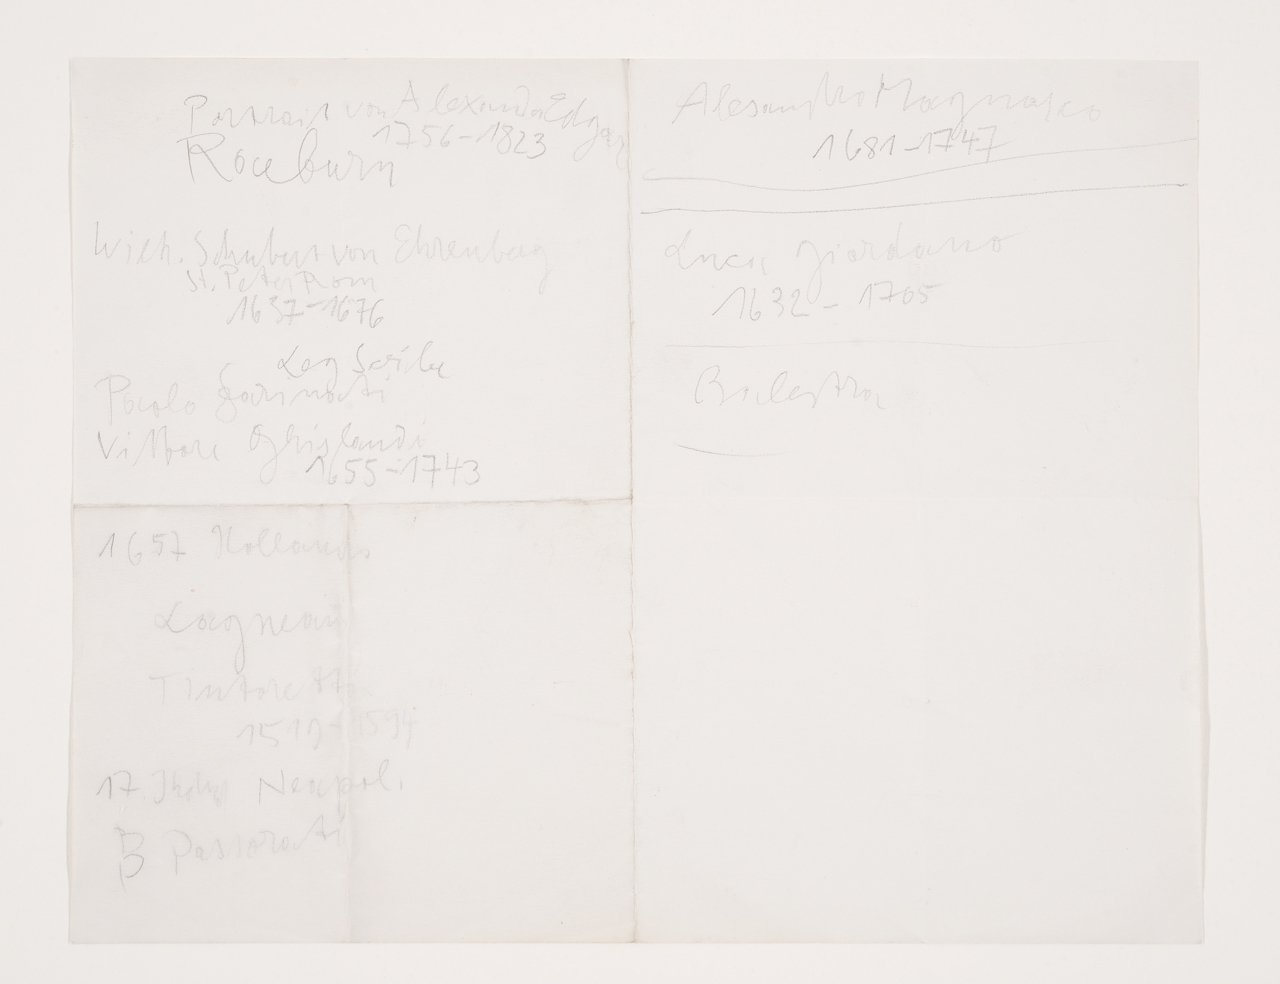 Portrait von Alexander Edgar
1756-1823
Roceburn
Wilh. Schubert von Ehrenberg
St. Peter Rom
1637-1676
Paolo Farinati
Vittore Ghislandi
1655-1743
1657 Holland
Lagneau
Tintoretto
1519-1594
17. Jhdt Neapol.
B Passarotti
Alesandro Magnasco
1681-1747
Luca Giordano
1632-1705
Balestra